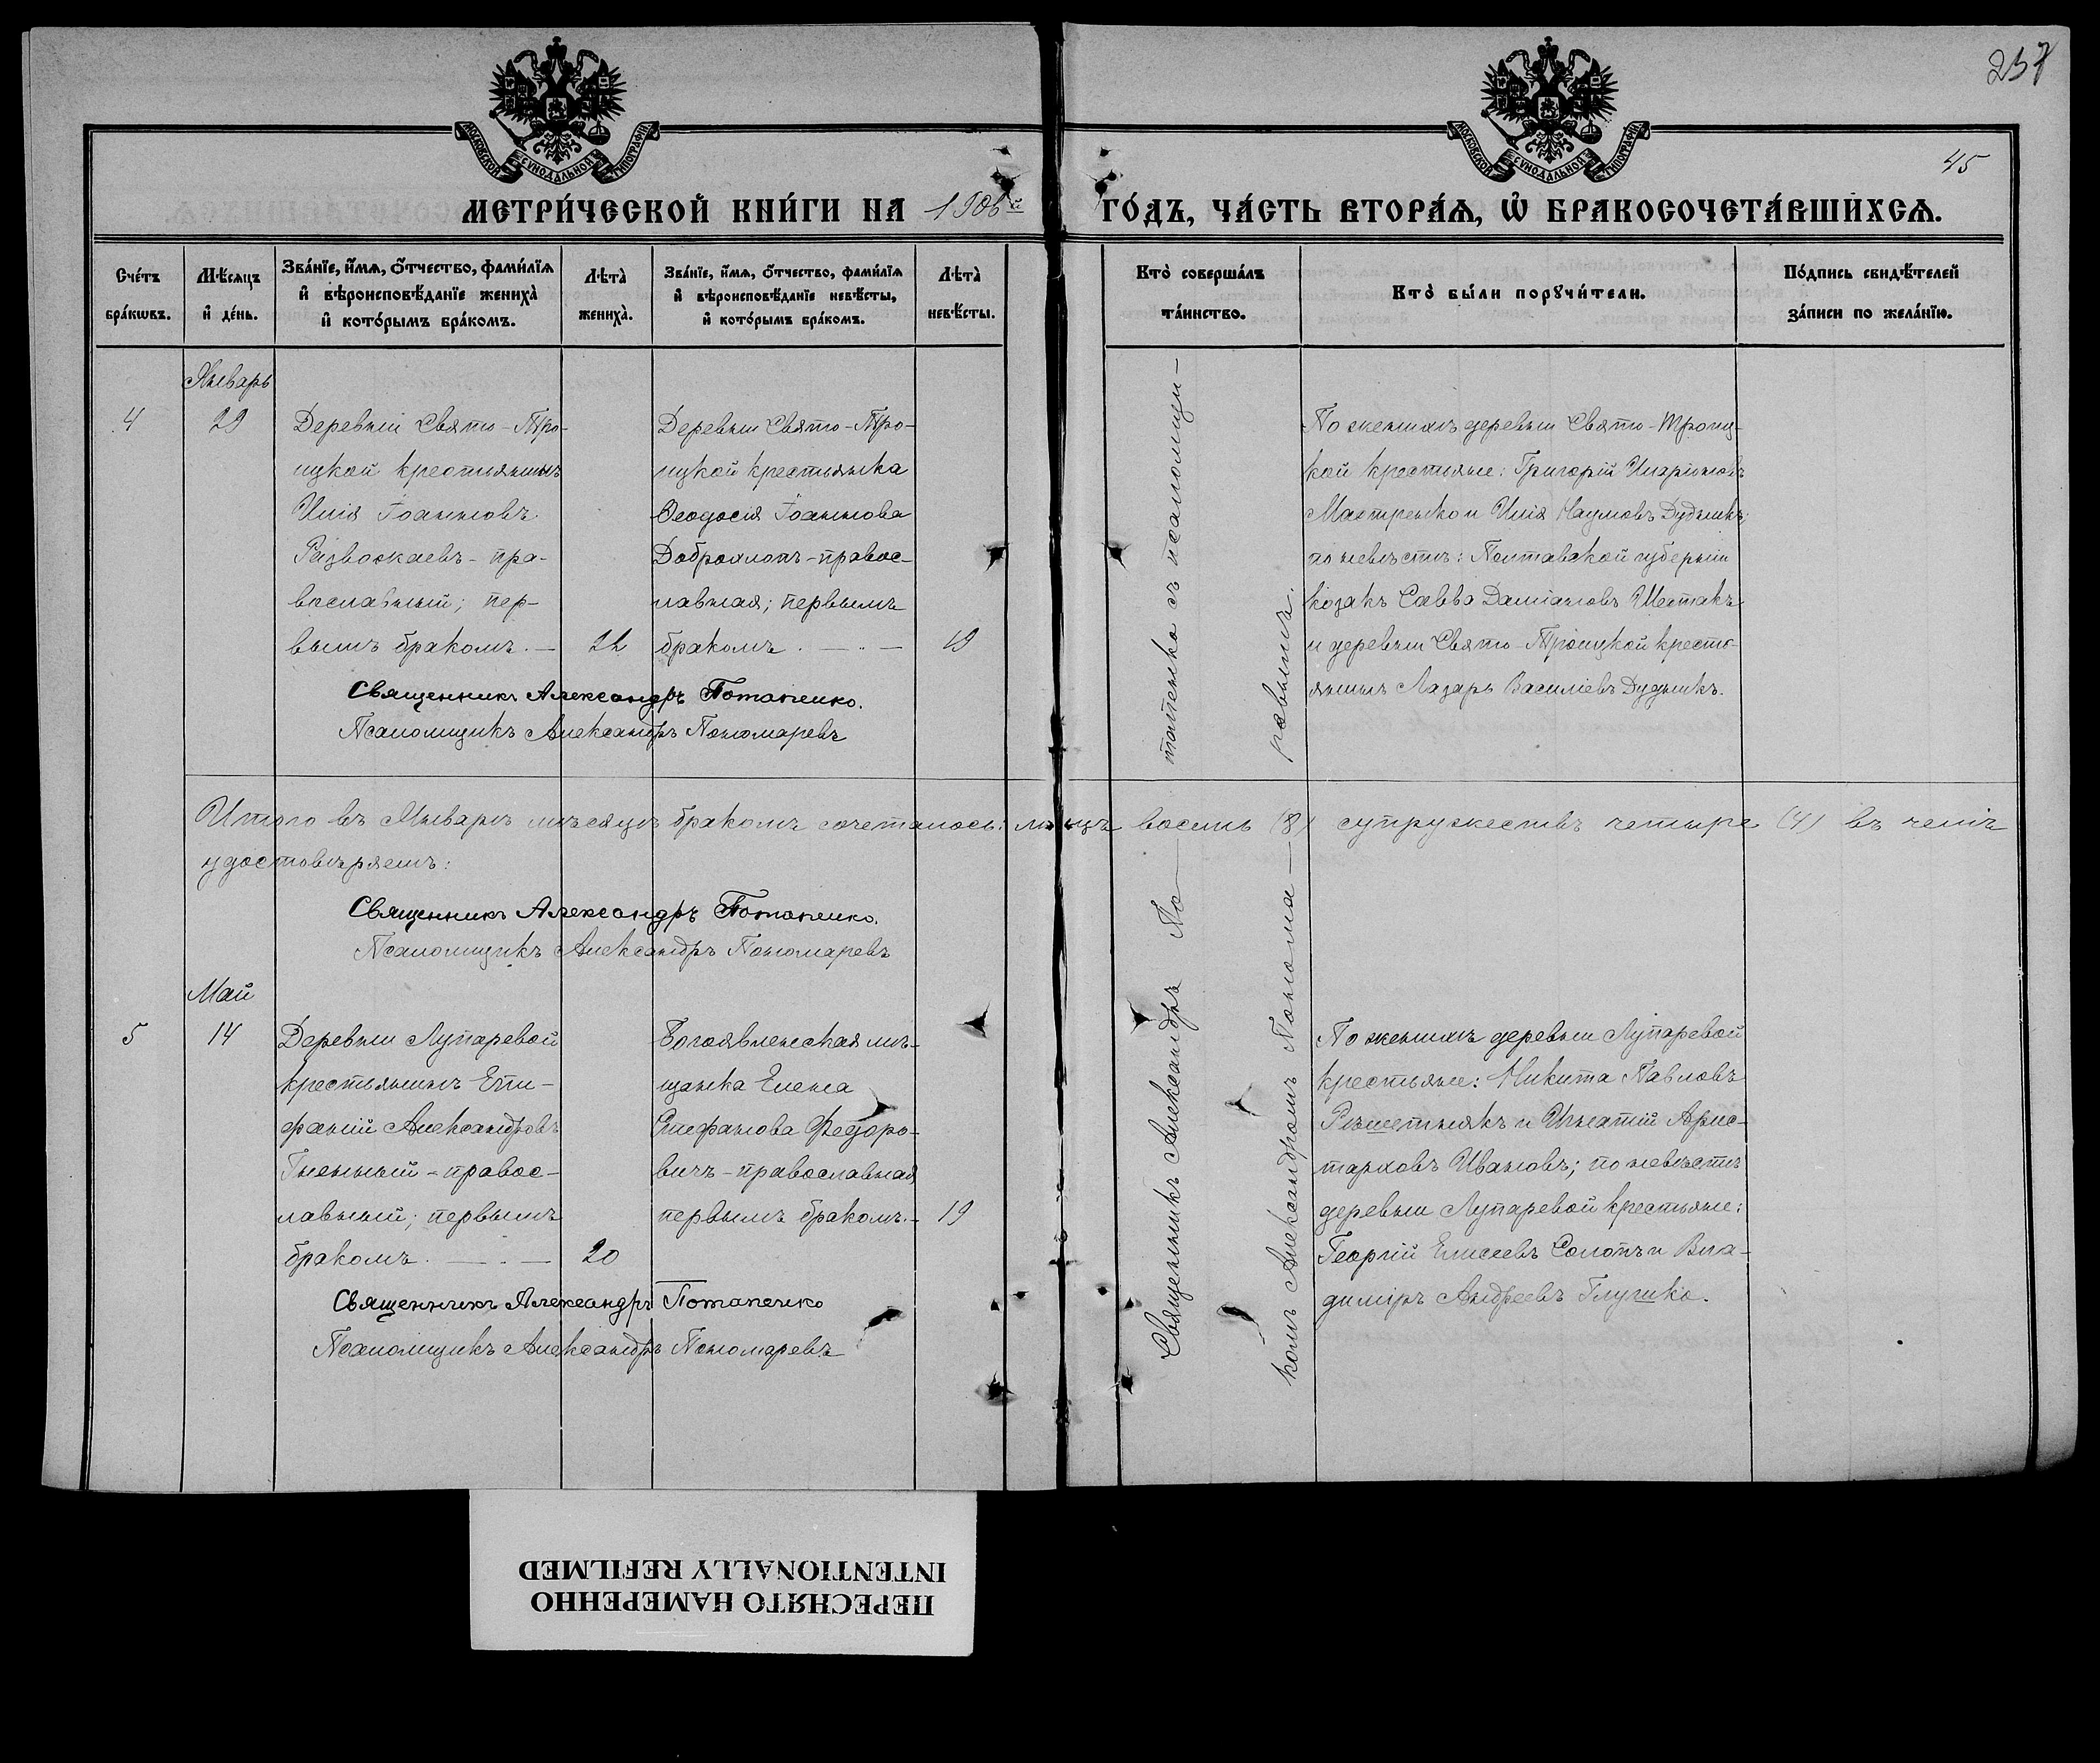 237
45
МОСКОВСКОЙ СѴНОДАЛЬНОЙ ТИПОГРАФІИ.
МОСКОВСКОЙ СѴНОДАЛЬНОЙ ТИПОГРАФІИ.
МЕТРИ́ЧЕСКОЙ КНИ́ГИ НА 1906й ГО́ДЪ, ЧА́СТЬ ВТОРА́Я, Ѿ БРАКОСОЧЕТА́ВШИХСЯ.
Сче́тъ бра́кѡвъ.
Мѣ́сяцъ и҆ де́нь.
Зва́нїе, и҆́мя, ѻ҆́тчество, фами́лїя и҆ вѣроисповѣ́данїе жениха̀ и҆ кото́рымъ бра́комъ.
Лѣта̀ жениха̀.
Зва́нїе, и҆́мя, ѻ҆́тчество, фами́лїя и҆ вѣроисповѣ́данїе невѣ́сты, и҆ кото́рымъ бра́комъ.
Лѣта̀ невѣ́сты.
Кто̀ соверша́лъ та́инство.
Кто̀ бы́ли порꙋчи́тели.
По́дпись свидѣ́телей за́писи по жела́нїю.
Январь
4
29
Деревни Свято-Тро-
ицкой крестьянинъ
Илія Іоанновъ
Развоскаевъ - пра-
вославный; пер-
вымъ бракомъ. —
22
Деревни Свято-Тро-
ицкой крестьянка
Ѳеодосія Іоаннова
Доброхлопъ - правос-
лавная; первымъ
бракомъ. — . —
19
Священникъ Александръ Потапенко.
Псаломщикъ Александръ Пономаревъ
По женихѣ деревни Свято-Троиц-
кой крестьяне: Григорій Иларіоновъ
Мастренко и Илія Наумовъ Дудникъ;
по невѣстѣ: Полтавской губерніи
козакъ Савва Даміановъ Шестакъ
и деревни Свято-Троицкой кресть-
янинъ Лазарь Василіевъ Дудникъ.
Итого въ Январѣ мѣсяцѣ бракомъ сочеталось: лицъ восемь (8) супружествъ четыре (4) въ чемъ
удостовѣряемъ:
Священникъ Александръ Потапенко.
Псаломщикъ Александръ Пономаревъ
Май
5
14
Деревни Лупаревой
крестьянинъ Епи-
фаній Александровъ
Гненный - правос-
лавный; первымъ
бракомъ. — . —
20
Богоявленская мѣ-
щанка Елена
Епифанова Федоро-
вичъ - православная
первымъ бракомъ. -
19
Священникъ Александръ Потапенко
Псаломщикъ Александръ Пономаревъ
Священникъ Александръ По—
тапенко съ псаломщи—
комъ Александромъ Понома—
ревымъ.
По женихѣ деревни Лупаревой
крестьяне: Никита Павловъ
Рѣшетнякъ и Игнатій Арис-
тарховъ Ивановъ; по невѣстѣ
деревни Лупаревой крестьяне:
Георгій Елисеевъ Солопъ и Вла-
диміръ Андреевъ Глушко.
INTENTIONALLY REFILMED
ПЕРЕСНЯТО НАМЕРЕННО